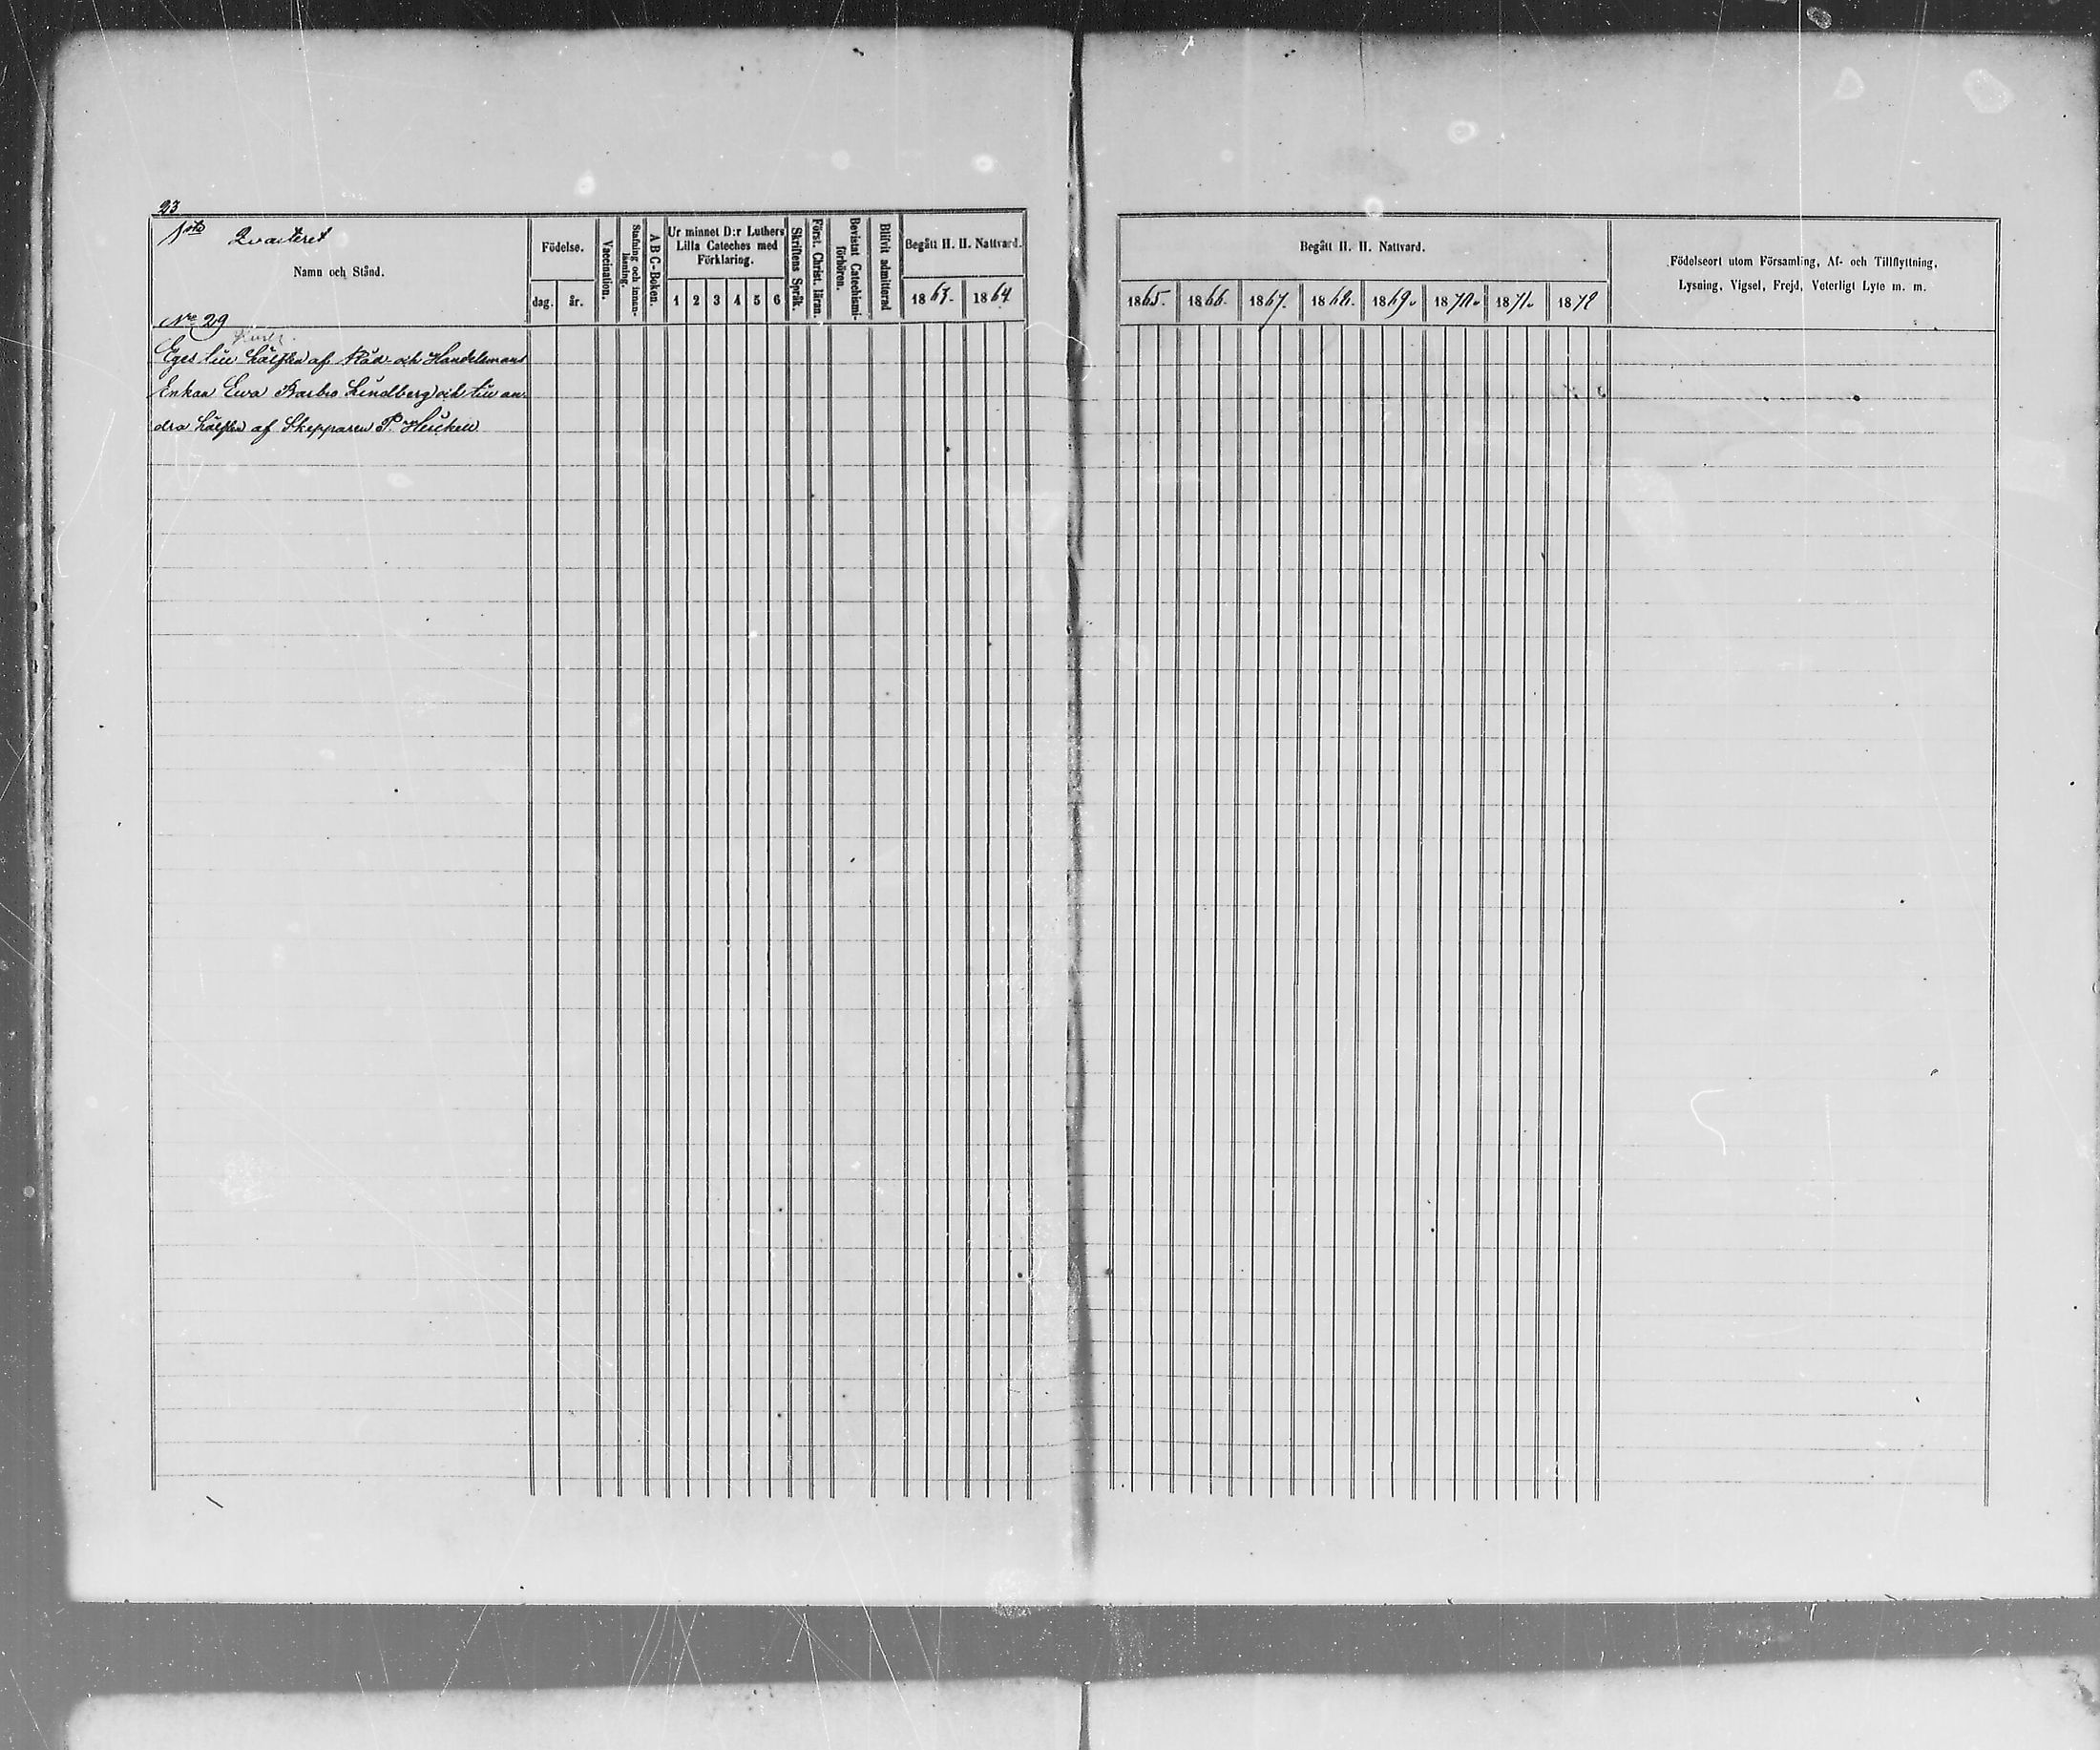 23
1sta Qvarteret
Namn och Stånd.
No 29
Födelse.
dag. år.
Vaccination.
Stafning och innan-
läsning.
A B C-Boken.
Ur minnet D:r Luthers
Lilla Cateches med
Förklaring.
1 2 3 4 5 6
Skriftens Språk.
Först. Christ. lärn.
Bevistat Catechismi-
förhören.
Blifvit admitterad
Begått H. H. Nattvard.
1863. 1864
Eges till hälften af Råd- och Handelsmans
Enkan Ewa Barbro Lindberg och till an-
dra hälften af Skepparen P.
Begått H. H. Nattvard.
1865. 1866. 1867. 1868. 1869. 1870. 1871. 1872
Födelseort utom Församling, Af- och Tillflyttning,
Lysning, Vigsel, Frejd, Veterligt Lyte m. m.